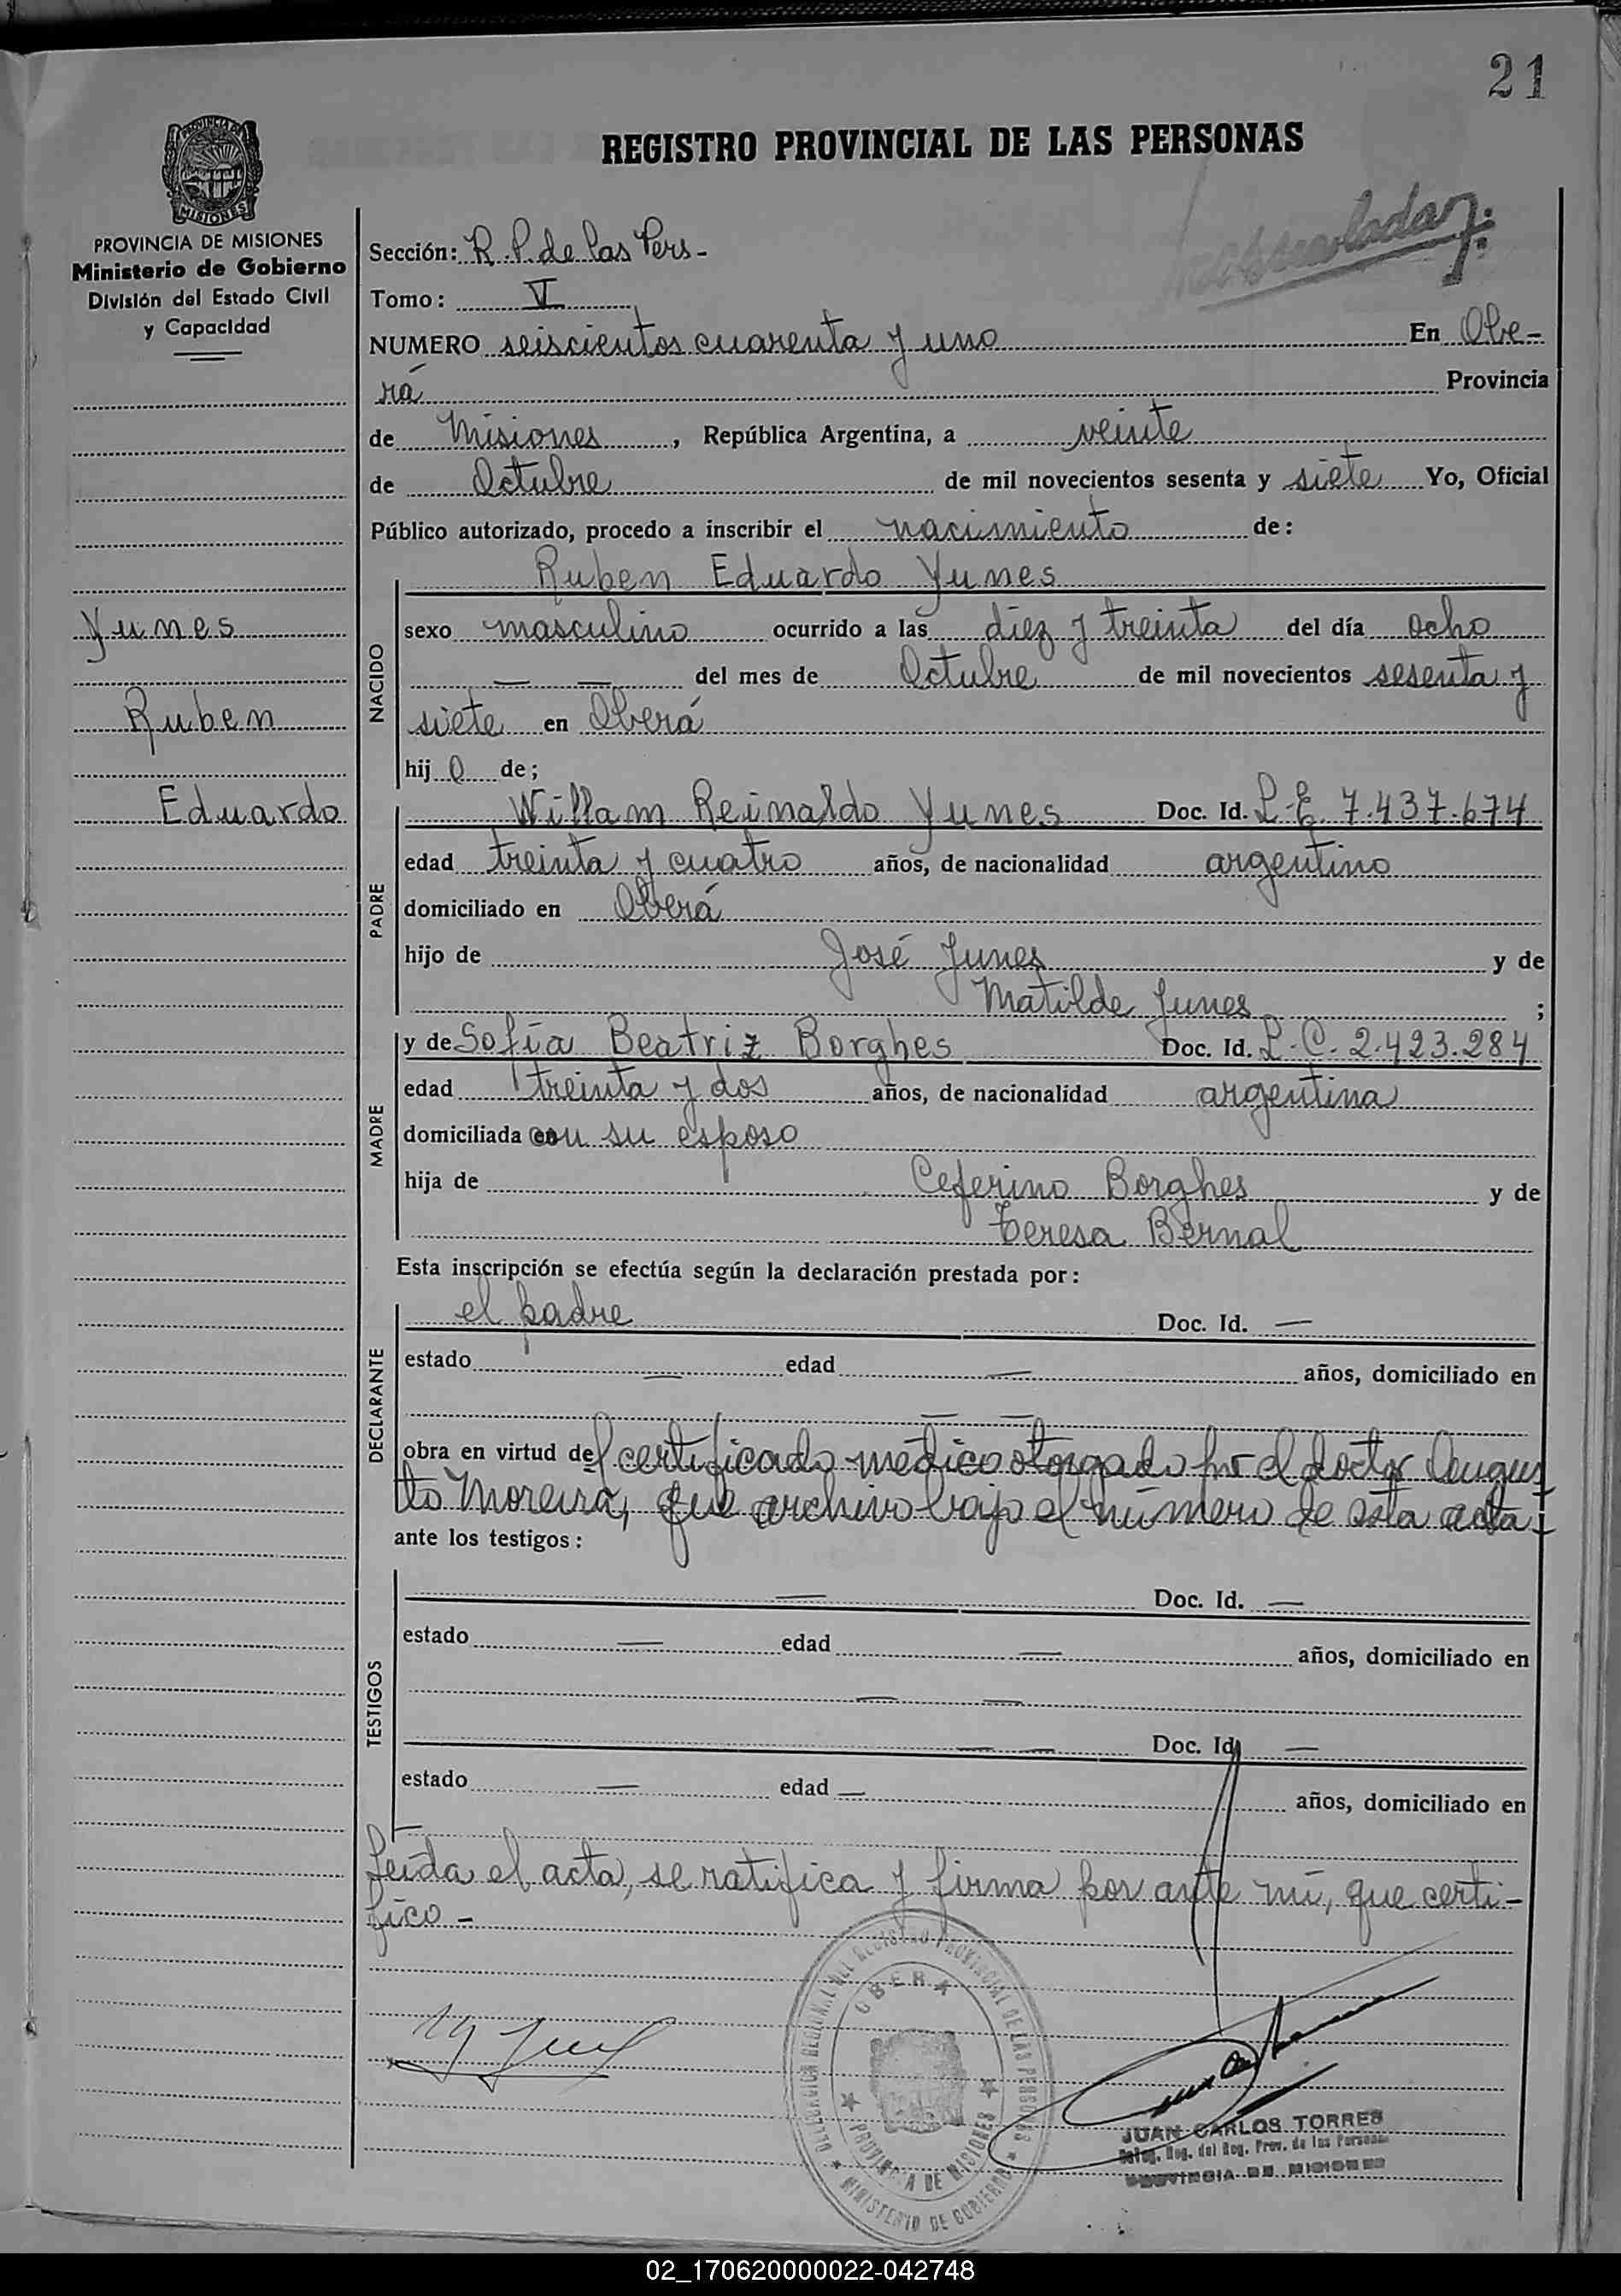 21
REGISTRO PROVINCIAL DE LAS PERSONAS
PROVINCIA DE
MISIONES
PROVINCIA DE MISIONES
Ministerio de Gobierno
División del Estado Civil
y Capacidad
Yunes
Ruben
Eduardo
Sección: R. P. de las Pers-
Tomo: V
NUMERO seiscientos cuarenta y uno En Obe-
rá Provincia
de Misiones, República Argentina, a veinte
de Octubre de mil novecientos sesenta y siete Yo, Oficial
Público autorizado, procedo a inscribir el nacimiento de:
NACIDO
Ruben Eduardo Yunes
sexo masculino ocurrido a las diez y treinta del día ocho
— — del mes de Octubre de mil novecientos sesenta y
siete en Oberá
hij o de;
PADRE
Willam Reinaldo Yunes Doc. Id. L.E. 7.437.674
edad treinta y cuatro años, de nacionalidad argentino
domiciliado en Oberá
hijo de José Junes y de
Matilde Junes ;
MADRE
y de Sofía Beatriz Borghes Doc. Id. L.C. 2.423.284
edad treinta y dos años, de nacionalidad argentina
domiciliada con su esposo
hija de Ceferino Borghes y de
Teresa Bernal
Esta inscripción se efectúa según la declaración prestada por:
DECLARANTE
el padre Doc. Id. —
estado — edad — años, domiciliado en
— —
obra en virtud del certificado médico otorgado por el doctor Augus
to Moreira, que archivo bajo el número de esta acta-
ante los testigos:
TESTIGOS
— Doc. Id. —
estado — edad — años, domiciliado en
— —
— — Doc. Id. —
estado — edad — años, domiciliado en
Leída el acta, se ratifica y firma por ante mí, que certi-
fico-
DELEGACION REGIONAL DEL REGISTRO PROVINCIAL DE LAS PERSONAS
OBERA
PROVINCIA DE MISIONES
MINISTERIO DE GOBIERNO
JUAN CARLOS TORRES
Deleg. Reg. del Reg. Prov. de las Personas
PROVINCIA DE MISIONES
02_170620000022-042748